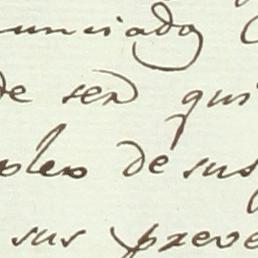 unciado
de ser qui
pleo de sus
sus preve